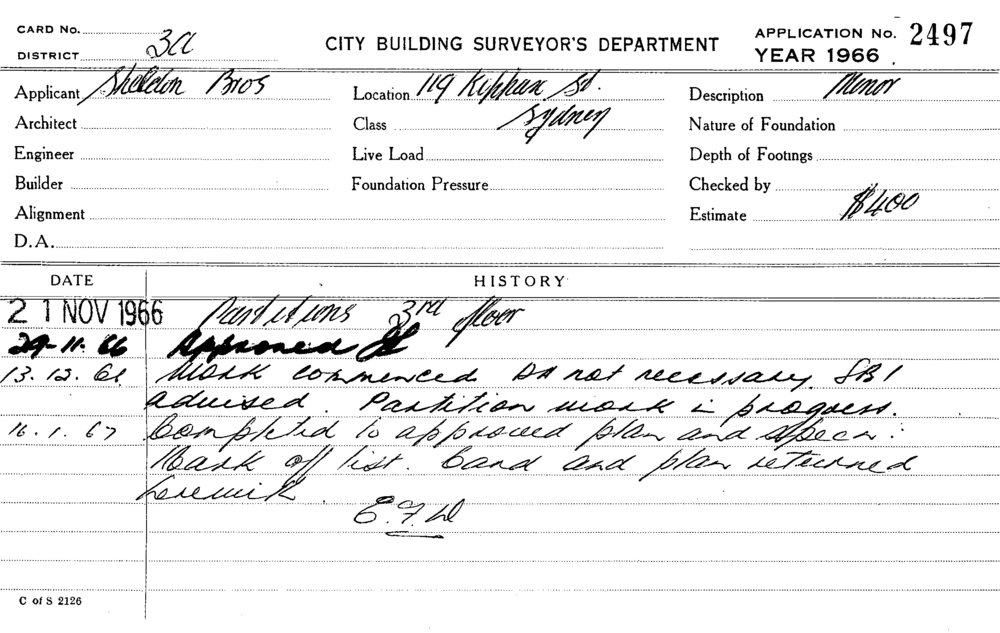 CARD No.
DISTRICT 3a
CITY BUILDING SURVEYOR'S DEPARTMENT
APPLICATION No. 2497
YEAR 1966
Applicant Sheldon Bros
Location 119 Kippax St.
Description Minor
Architect
Class Sydney
Nature of Foundation
Engineer
Live Load
Depth of Footings
Builder
Foundation Pressure
Checked by
Alignment
Estimate $400
D.A.
DATE
HISTORY
21 NOV 1966 Partitions 3rd floor
29-11-66 Approved
13.12.66 Work commenced DA not necessary. SBI
advised. Partition work in progress.
16.1.67 Completed to approved plan and specn:
Mark off list. Card and plan returned
herewith
E.F.D
C of S 2126